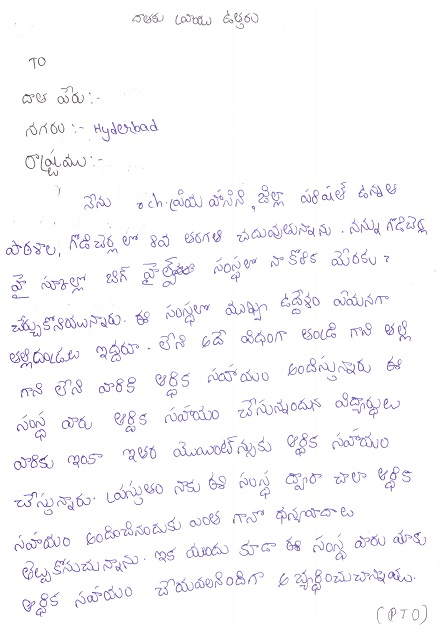 దాతకు వ్రాయు ఉత్తరం
TO
దాత పేరు:-
నగరం :- Hyderbad
రాష్ట్రము :-
నేను ch. ప్రియ హాసిని, జిల్లా పరిషత్ ఉన్నత
పాఠశాల, గొడిచెర్ల లో 8వ తరగతి చదువుతున్నాను. నన్ను గొడిచెర్ల
హై స్కూల్లో సంస్థలో నా కొరిక మేరకు
చేర్చుకొనియున్నారు. ఈ సంస్థలో ముఖ్య ఉద్దేశం ఏమనగా
తల్లిదండ్రులు ఇద్దరూ. లేని అదే విధంగా తండ్రి గాని తల్లి
గాని లేని వారికి ఆర్ధిక సహాయం అందిస్తున్నారు ఈ
సంస్థ వారు ఆర్ధిక సహాయం చేసున్నందున విద్యార్ధులు
వారికు ఇంకా ఇతర ఆర్ధిక సహాయం
చేస్తున్నారు. ప్రస్తుతం నాకు ఈ సంస్థ ద్వారా చాలా ఆర్ధిక
సహాయం అందించినందుకు ఎంత గానో ధన్యవాదాలు
తెల్పుకొనుచున్నాను. ఇక ముందు కూడా ఈ సంస్థ వారు మాకు
ఆర్ధిక సహాయం చేయవలసిందిగా
(PTO)